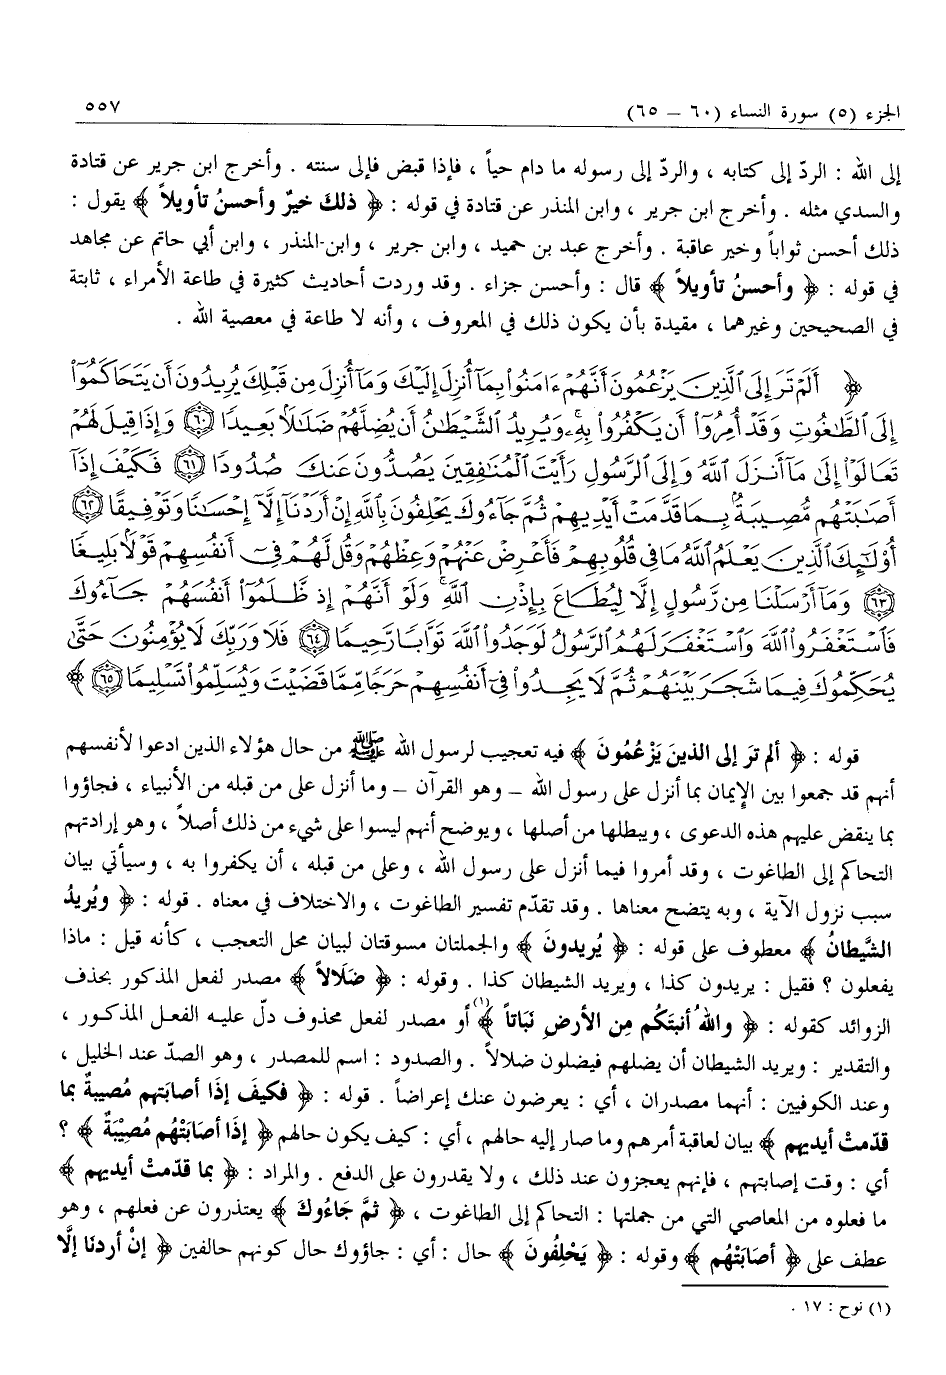 الجزء (٥) سورة النساء (٦٠ – ٦٥) ٥٥٧
إلى الله : الردّ إلى كتابه ، والردّ إلى رسوله ما دام حياً ، فإذا قبض فإلى سنته . وأخرج ابن جرير عن قتادة
والسدي مثله . وأخرج ابن جرير ، وابن المنذر عن قتادة في قوله : ﴿ ذلكَ خيرٌ وأحسنُ تأويلاً ﴾ يقول :
ذلك أحسن ثواباً وخير عاقبة . وأخرج عبد بن حميد ، وابن جرير ، وابن المنذر ، وابن أبي حاتم عن مجاهد
في قوله : ﴿ وأحسنُ تأويلاً ﴾ قال : وأحسن جزاء . وقد وردت أحاديث كثيرة في طاعة الأمراء ، ثابتة
في الصحيحين وغيرهما ، مقيدة بأن يكون ذلك في المعروف ، وأنه لا طاعة في معصية الله .
﴿ أَلَمْ تَرَ إِلَى ٱلَّذِينَ يَزْعُمُونَ أَنَّهُمْ ءَامَنُوا۟ بِمَآ أُنزِلَ إِلَيْكَ وَمَآ أُنزِلَ مِن قَبْلِكَ يُرِيدُونَ أَن يَتَحَاكَمُوٓا۟
إِلَى ٱلطَّٰغُوتِ وَقَدْ أُمِرُوٓا۟ أَن يَكْفُرُوا۟ بِهِۦ وَيُرِيدُ ٱلشَّيْطَٰنُ أَن يُضِلَّهُمْ ضَلَٰلًۢا بَعِيدًا ﴿٦٠﴾ وَإِذَا قِيلَ لَهُمْ
تَعَالَوْا۟ إِلَىٰ مَآ أَنزَلَ ٱللَّهُ وَإِلَى ٱلرَّسُولِ رَأَيْتَ ٱلْمُنَٰفِقِينَ يَصُدُّونَ عَنكَ صُدُودًا ﴿٦١﴾ فَكَيْفَ إِذَآ
أَصَٰبَتْهُم مُّصِيبَةٌۢ بِمَا قَدَّمَتْ أَيْدِيهِمْ ثُمَّ جَآءُوكَ يَحْلِفُونَ بِٱللَّهِ إِنْ أَرَدْنَآ إِلَّآ إِحْسَٰنًا وَتَوْفِيقًا ﴿٦٢﴾
أُو۟لَٰٓئِكَ ٱلَّذِينَ يَعْلَمُ ٱللَّهُ مَا فِى قُلُوبِهِمْ فَأَعْرِضْ عَنْهُمْ وَعِظْهُمْ وَقُل لَّهُمْ فِىٓ أَنفُسِهِمْ قَوْلًۢا بَلِيغًا
﴿٦٣﴾ وَمَآ أَرْسَلْنَا مِن رَّسُولٍ إِلَّا لِيُطَاعَ بِإِذْنِ ٱللَّهِ ۚ وَلَوْ أَنَّهُمْ إِذ ظَّلَمُوٓا۟ أَنفُسَهُمْ جَآءُوكَ
فَٱسْتَغْفَرُوا۟ ٱللَّهَ وَٱسْتَغْفَرَ لَهُمُ ٱلرَّسُولُ لَوَجَدُوا۟ ٱللَّهَ تَوَّابًا رَّحِيمًا ﴿٦٤﴾ فَلَا وَرَبِّكَ لَا يُؤْمِنُونَ حَتَّىٰ
يُحَكِّمُوكَ فِيمَا شَجَرَ بَيْنَهُمْ ثُمَّ لَا يَجِدُوا۟ فِىٓ أَنفُسِهِمْ حَرَجًا مِّمَّا قَضَيْتَ وَيُسَلِّمُوا۟ تَسْلِيمًا ﴿٦٥﴾ ﴾
قوله : ﴿ ألم ترَ إلى الذينَ يَزْعُمُونَ ﴾ فيه تعجيب لرسول الله ﷺ من حال هؤلاء الذين ادعوا لأنفسهم
أنهم قد جمعوا بين الإيمان بما أنزل على رسول الله – وهو القرآن – وما أنزل على من قبله من الأنبياء ، فجاؤوا
بما ينقض عليهم هذه الدعوى ، ويبطلها من أصلها ، ويوضح أنهم ليسوا على شيء من ذلك أصلاً ، وهو إرادتهم
التحاكم إلى الطاغوت ، وقد أمروا فيما أنزل على رسول الله ، وعلى من قبله ، أن يكفروا به ، وسيأتي بيان
سبب نزول الآية ، وبه يتضح معناها . وقد تقدّم تفسير الطاغوت ، والاختلاف في معناه . قوله : ﴿ ويُريدُ
الشَّيطانُ ﴾ معطوف على قوله : ﴿ يُريدونَ ﴾ والجملتان مسوقتان لبيان محل التعجب ، كأنه قيل : ماذا
يفعلون ؟ فقيل : يريدون كذا ، ويريد الشيطان كذا . وقوله : ﴿ ضَلَالاً ﴾ مصدر لفعل المذكور بحذف
الزوائد كقوله : ﴿ واللهُ أنبتَكُم مِن الأرضِ نَباتاً ﴾(١) أو مصدر لفعل محذوف دلّ عليه الفعل المذكور ،
والتقدير : ويريد الشيطان أن يضلهم فيضلون ضلالاً . والصدود : اسم للمصدر ، وهو الصدّ عند الخليل ،
وعند الكوفيين : أنهما مصدران ، أي : يعرضون عنك إعراضاً . قوله : ﴿ فكيفَ إذَا أصابَتهم مُصيبةٌ بما
قدّمتْ أيديهم ﴾ بيان لعاقبة أمرهم وما صار إليه حالهم ، أي : كيف يكون حالهم ﴿ إذَا أصَابَتْهُم مُصِيْبَةٌ ﴾ ؟
أي : وقت إصابتهم ، فإنهم يعجزون عند ذلك ، ولا يقدرون على الدفع . والمراد : ﴿ بما قدّمتْ أيديهم ﴾
ما فعلوه من المعاصي التي من جملتها : التحاكم إلى الطاغوت ، ﴿ ثمّ جَاءُوكَ ﴾ يعتذرون عن فعلهم ، وهو
عطف على ﴿ أصَابَتْهُم ﴾ وقوله : ﴿ يَحْلِفُونَ ﴾ حال : أي : جاؤوك حال كونهم حالفين ﴿ إنْ أردنَا إلَّا
(١) نوح : ١٧ .